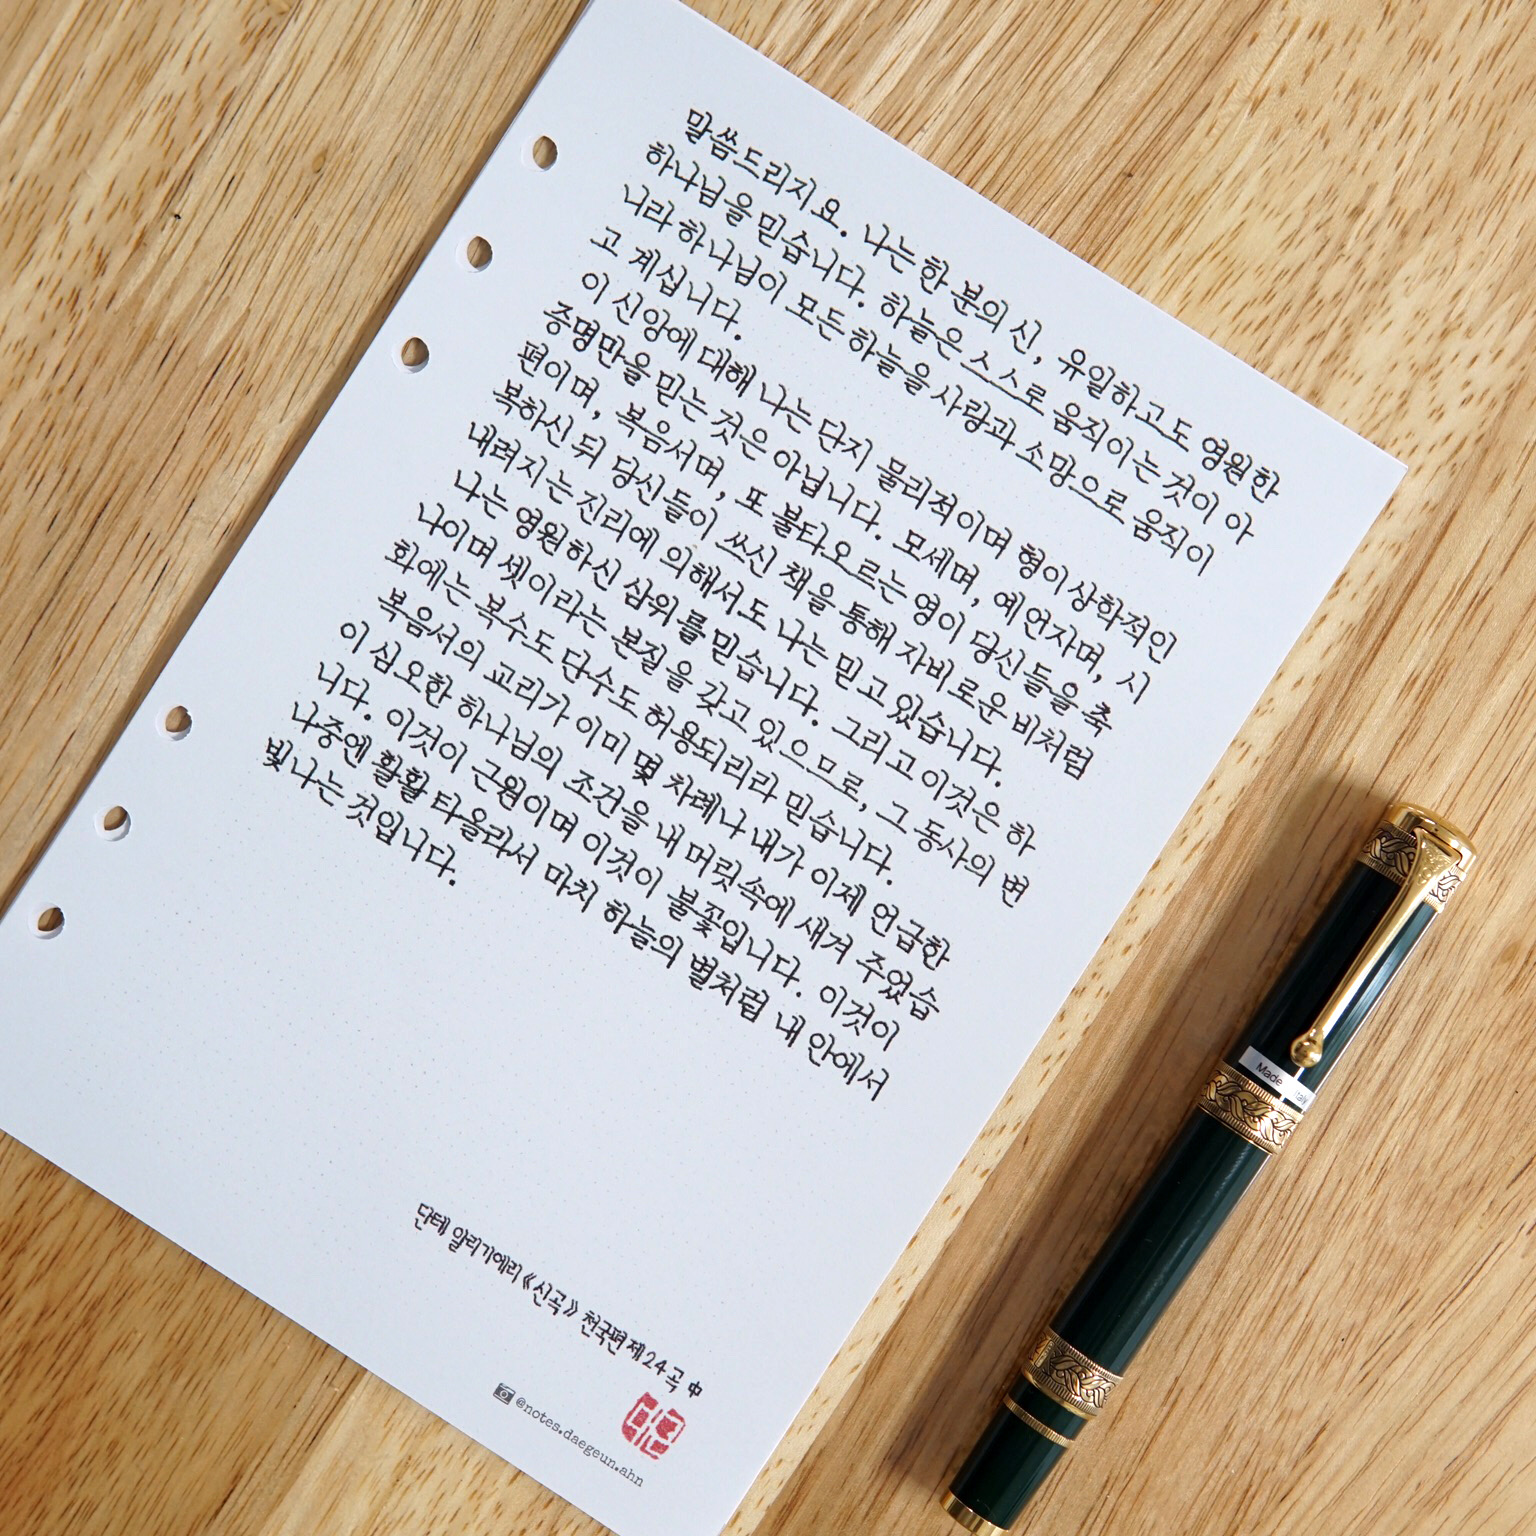 말씀드리지요. 나는 한 분의 신, 유일하고도 영원한
하나님을 믿습니다. 하늘은 스스로 움직이는 것이 아
니라 하나님이 모든 하늘을 사랑과 소망으로 움직이
고 계십니다.
이 신앙에 대해 나는 단지 물리적이며 형이상학적인
증명만을 믿는 것은 아닙니다. 모세며, 예언자며, 시
편이며, 복음서며, 또 불타오르는 영이 당신들을 축
복하신 뒤 당신들이 쓰신 책을 통해 자비로운 비처럼
내려지는 진리에 의해서도 나는 믿고 있습니다.
나는 영원하신 삼위를 믿습니다. 그리고 이것은 하
나이며 셋이라는 본질을 갖고 있으므로, 그 동사의 변
화에는 복수도 단수도 허용되리라 믿습니다.
복음서의 교리가 이미 몇 차례나 내가 이제 언급한
이 심오한 하나님의 조건을 내 머릿속에 새겨 주었습
니다. 이것이 근원이며 이것이 불꽃입니다. 이것이
나중엔 활활 타올라서 마치 하늘의 별처럼 내 안에서
빛나는 것입니다.
단테 알리기에리 《신곡》 천국편 제24곡 中
@notes.daegeun.ahn
대근
Made Italy